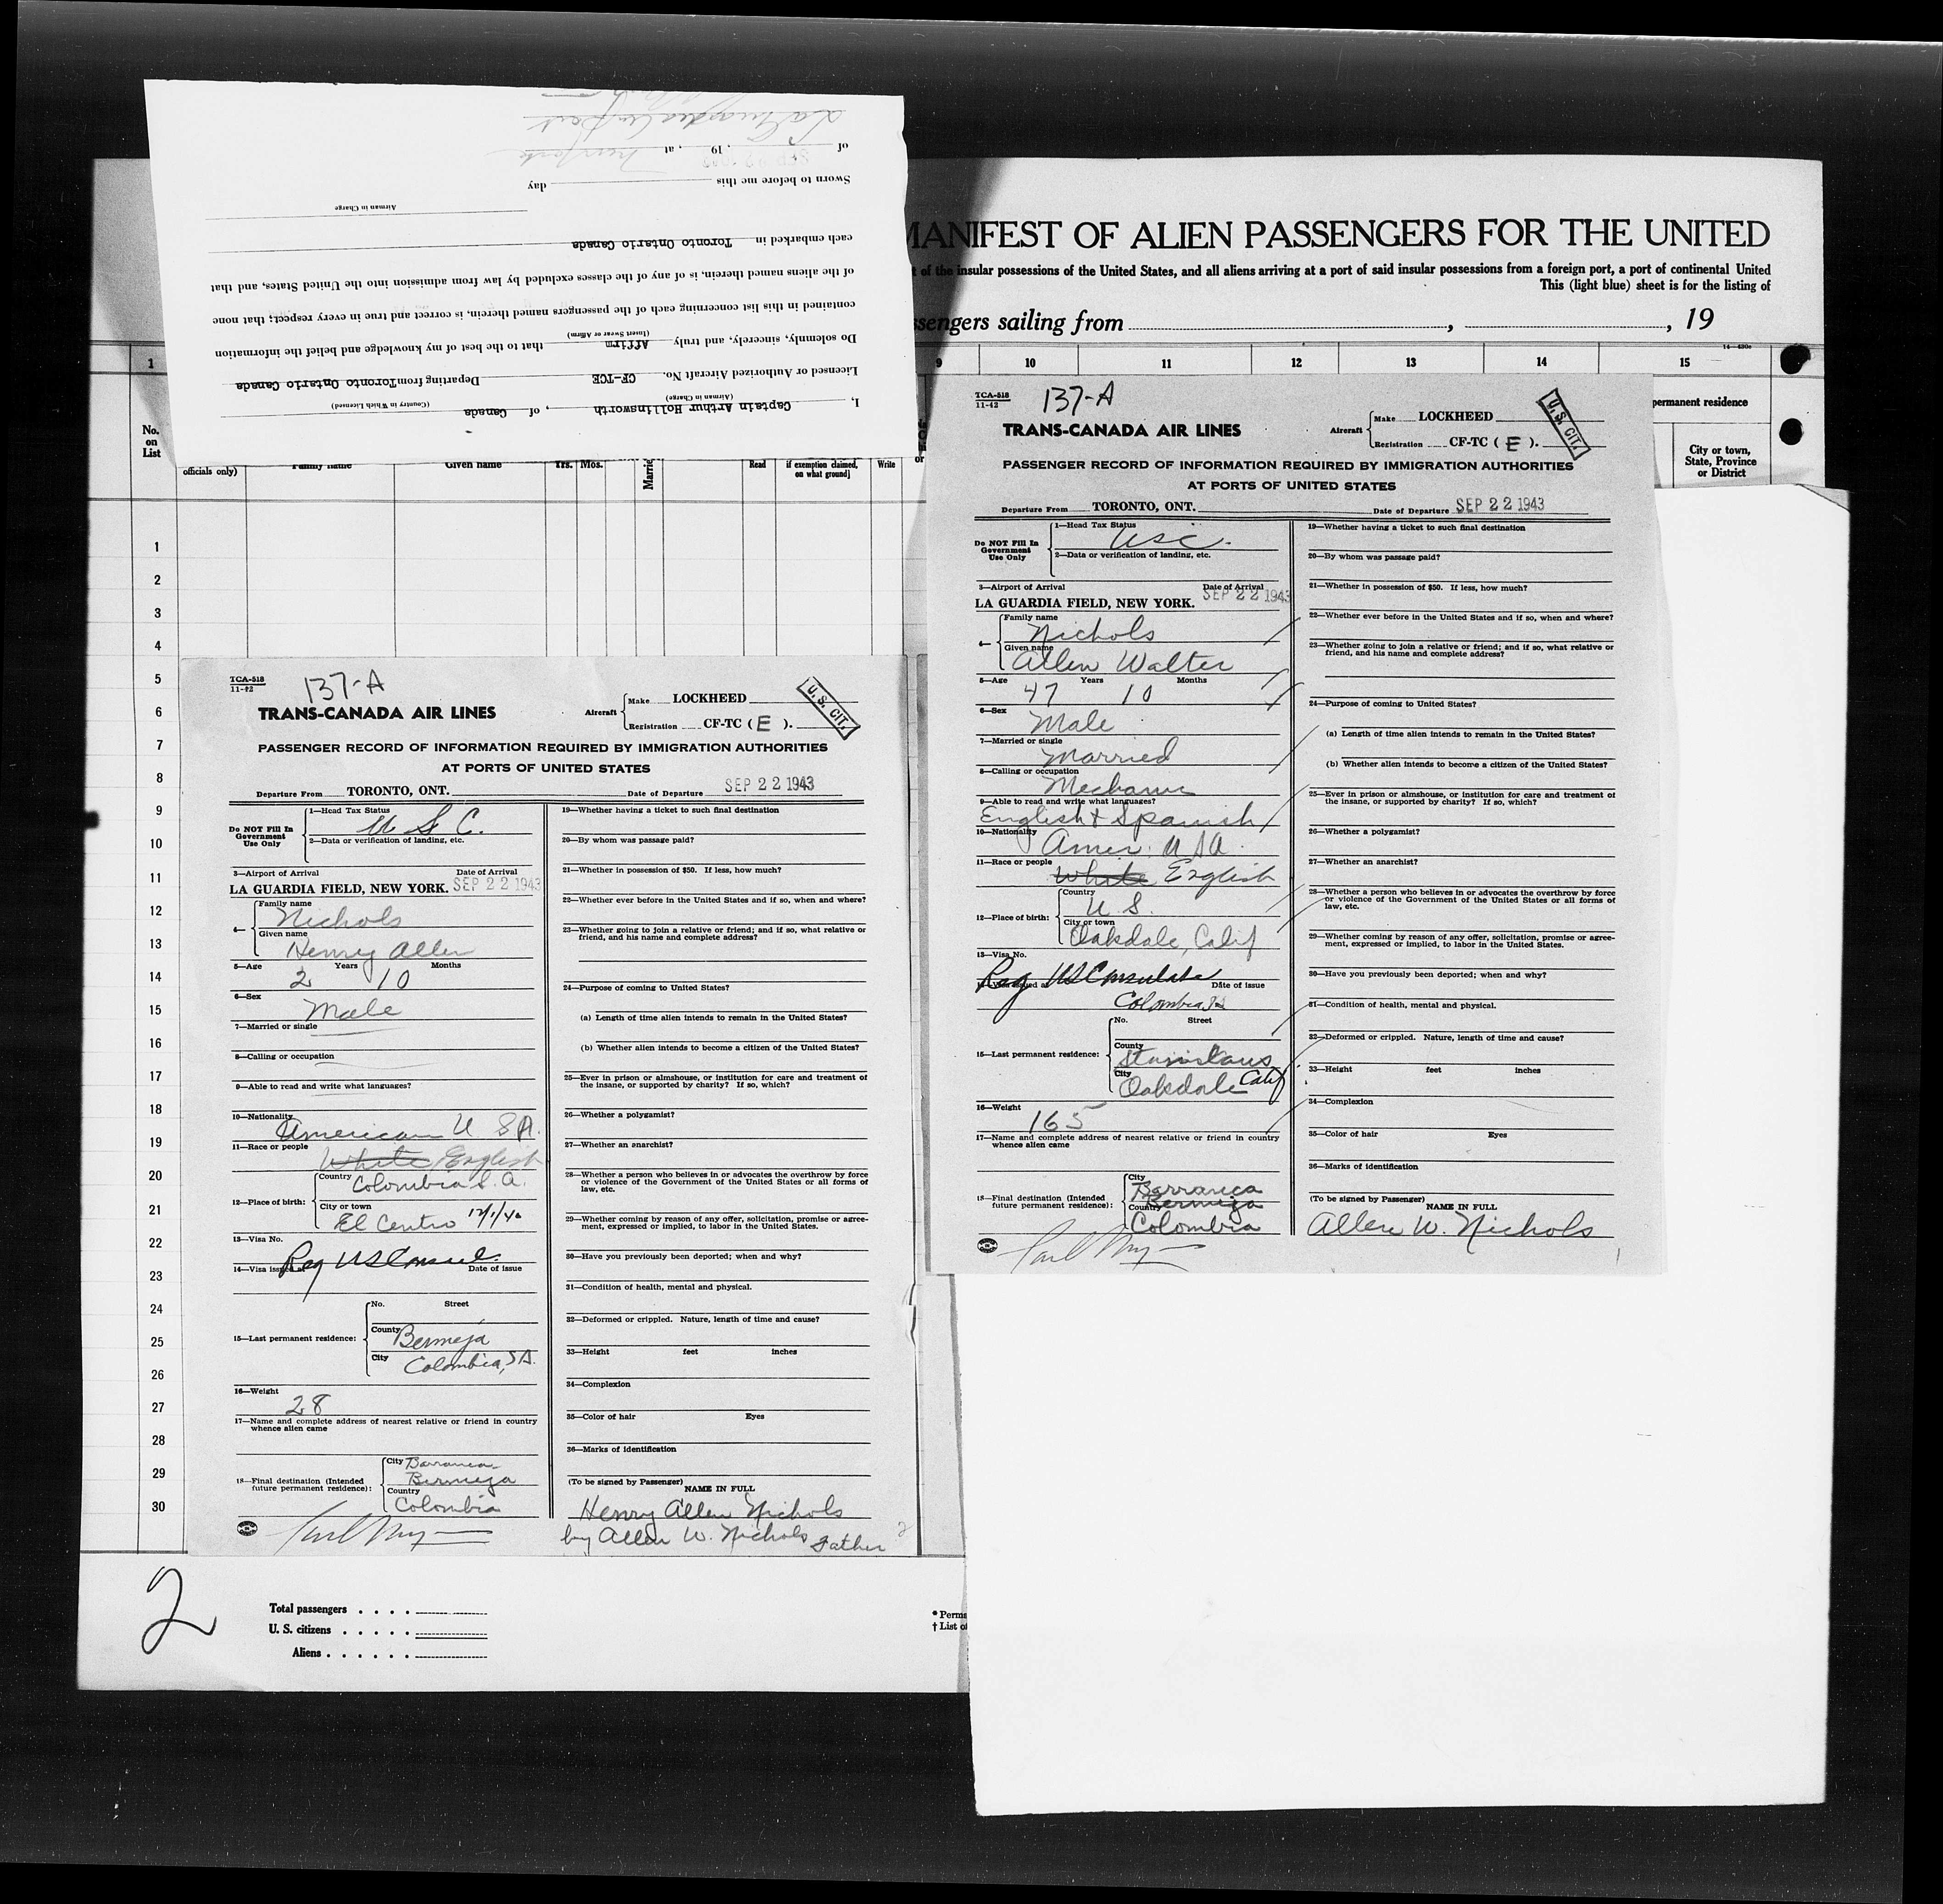 of SEP 22 1943, 19 , at New York
Sworn to before me this day
Airman in Charge
each embarked in Toronto Ontario Canada
of the aliens named therein, is of any of the classes excluded by law from admission into the United States, and that
contained in this list concerning each of the passengers named therein, is correct and true in every respect; that none
(Insert Swear or Affirm)
Do solemnly, sincerely, and truly Affirm that to the best of my knowledge and belief the information
Licensed or Authorized Aircraft No. CF-TCE Departing from Toronto Ontario Canada
(Airman in Charge) (Country in Which Licensed)
I, Captain Arthur Hollinsworth, of Canada
MANIFEST OF ALIEN PASSENGERS FOR THE UNITED
of the insular possessions of the United States, and all aliens arriving at a port of said insular possessions from a foreign port, a port of continental United
This (light blue) sheet is for the listing of
ssengers sailing from , , 19
1 9 10 11 12 13 14 15
No. on List
officials only) Family name Given name Yrs. Mos. Read if exemption claimed, on what ground] Write
permanent residence
City or town, State, Province or District
1
2
3
4
5
6
7
8
9
10
11
12
13
14
15
16
17
18
19
20
21
22
23
24
25
26
27
28
29
30
TCA-518
11-42
137-A
TRANS-CANADA AIR LINES
Aircraft Make LOCKHEED
Registration CF-TC ( E ).
U. S. CIT.
PASSENGER RECORD OF INFORMATION REQUIRED BY IMMIGRATION AUTHORITIES
AT PORTS OF UNITED STATES
Departure From TORONTO, ONT. Date of Departure SEP 22 1943
Do NOT Fill In Government Use Only
1—Head Tax Status U S C.
2—Data or verification of landing, etc.
3—Airport of Arrival Date of Arrival
LA GUARDIA FIELD, NEW YORK. SEP 22 1943
4— Family name Nichols
Given name Henry Allen
5—Age 2 Years 10 Months
6—Sex Male
7—Married or single
8—Calling or occupation
9—Able to read and write what languages?
10—Nationality American U S A.
11—Race or people White English
12—Place of birth: Country Colombia S. A.
City or town El Centro 12/1/40
13—Visa No.
Reg US Consul.
14—Visa issued at Date of issue
15—Last permanent residence: No. Street
County Bermeja
City Colombia, S A.
16—Weight 28
17—Name and complete address of nearest relative or friend in country whence alien came
18—Final destination (Intended future permanent residence): City Barranca-
Bermeja
Country Colombia
19—Whether having a ticket to such final destination
20—By whom was passage paid?
21—Whether in possession of $50. If less, how much?
22—Whether ever before in the United States and if so, when and where?
23—Whether going to join a relative or friend; and if so, what relative or friend, and his name and complete address?
24—Purpose of coming to United States?
(a) Length of time alien intends to remain in the United States?
(b) Whether alien intends to become a citizen of the United States?
25—Ever in prison or almshouse, or institution for care and treatment of the insane, or supported by charity? If so, which?
26—Whether a polygamist?
27—Whether an anarchist?
28—Whether a person who believes in or advocates the overthrow by force or violence of the Government of the United States or all forms of law, etc.
29—Whether coming by reason of any offer, solicitation, promise or agreement, expressed or implied, to labor in the United States.
30—Have you previously been deported; when and why?
31—Condition of health, mental and physical.
32—Deformed or crippled. Nature, length of time and cause?
33—Height feet inches
34—Complexion
35—Color of hair Eyes
36—Marks of identification
(To be signed by Passenger)
NAME IN FULL
Henry Allen Nichols
by Allen W. Nichols Father
TCA-518
11-42
137-A
TRANS-CANADA AIR LINES
Aircraft Make LOCKHEED
Registration CF-TC ( E ).
U. S. CIT.
PASSENGER RECORD OF INFORMATION REQUIRED BY IMMIGRATION AUTHORITIES
AT PORTS OF UNITED STATES
Departure From TORONTO, ONT. Date of Departure SEP 22 1943
Do NOT Fill In Government Use Only
1—Head Tax Status USC.
2—Data or verification of landing, etc.
3—Airport of Arrival Date of Arrival
LA GUARDIA FIELD, NEW YORK. SEP 22 1943
4— Family name Nichols
Given name Allen Walter
5—Age 47 Years 10 Months
6—Sex Male
7—Married or single Married
8—Calling or occupation Mechanic
9—Able to read and write what languages?
English & Spanish
10—Nationality Amer. U S A.
11—Race or people White English
12—Place of birth: Country U. S.
City or town Oakdale, Calif
13—Visa No.
Reg US Consulate
14—Visa issued at Date of issue
Colombia SA
15—Last permanent residence: No. Street
County Stanislaus
City Oakdale Calif
16—Weight 165
17—Name and complete address of nearest relative or friend in country whence alien came
18—Final destination (Intended future permanent residence): City Barranca
Bermeja
Country Colombia
19—Whether having a ticket to such final destination
20—By whom was passage paid?
21—Whether in possession of $50. If less, how much?
22—Whether ever before in the United States and if so, when and where?
23—Whether going to join a relative or friend; and if so, what relative or friend, and his name and complete address?
24—Purpose of coming to United States?
(a) Length of time alien intends to remain in the United States?
(b) Whether alien intends to become a citizen of the United States?
25—Ever in prison or almshouse, or institution for care and treatment of the insane, or supported by charity? If so, which?
26—Whether a polygamist?
27—Whether an anarchist?
28—Whether a person who believes in or advocates the overthrow by force or violence of the Government of the United States or all forms of law, etc.
29—Whether coming by reason of any offer, solicitation, promise or agreement, expressed or implied, to labor in the United States.
30—Have you previously been deported; when and why?
31—Condition of health, mental and physical.
32—Deformed or crippled. Nature, length of time and cause?
33—Height feet inches
34—Complexion
35—Color of hair Eyes
36—Marks of identification
(To be signed by Passenger)
NAME IN FULL
Allen W. Nichols
2
Total passengers
U. S. citizens
Aliens
* Perma
† List of